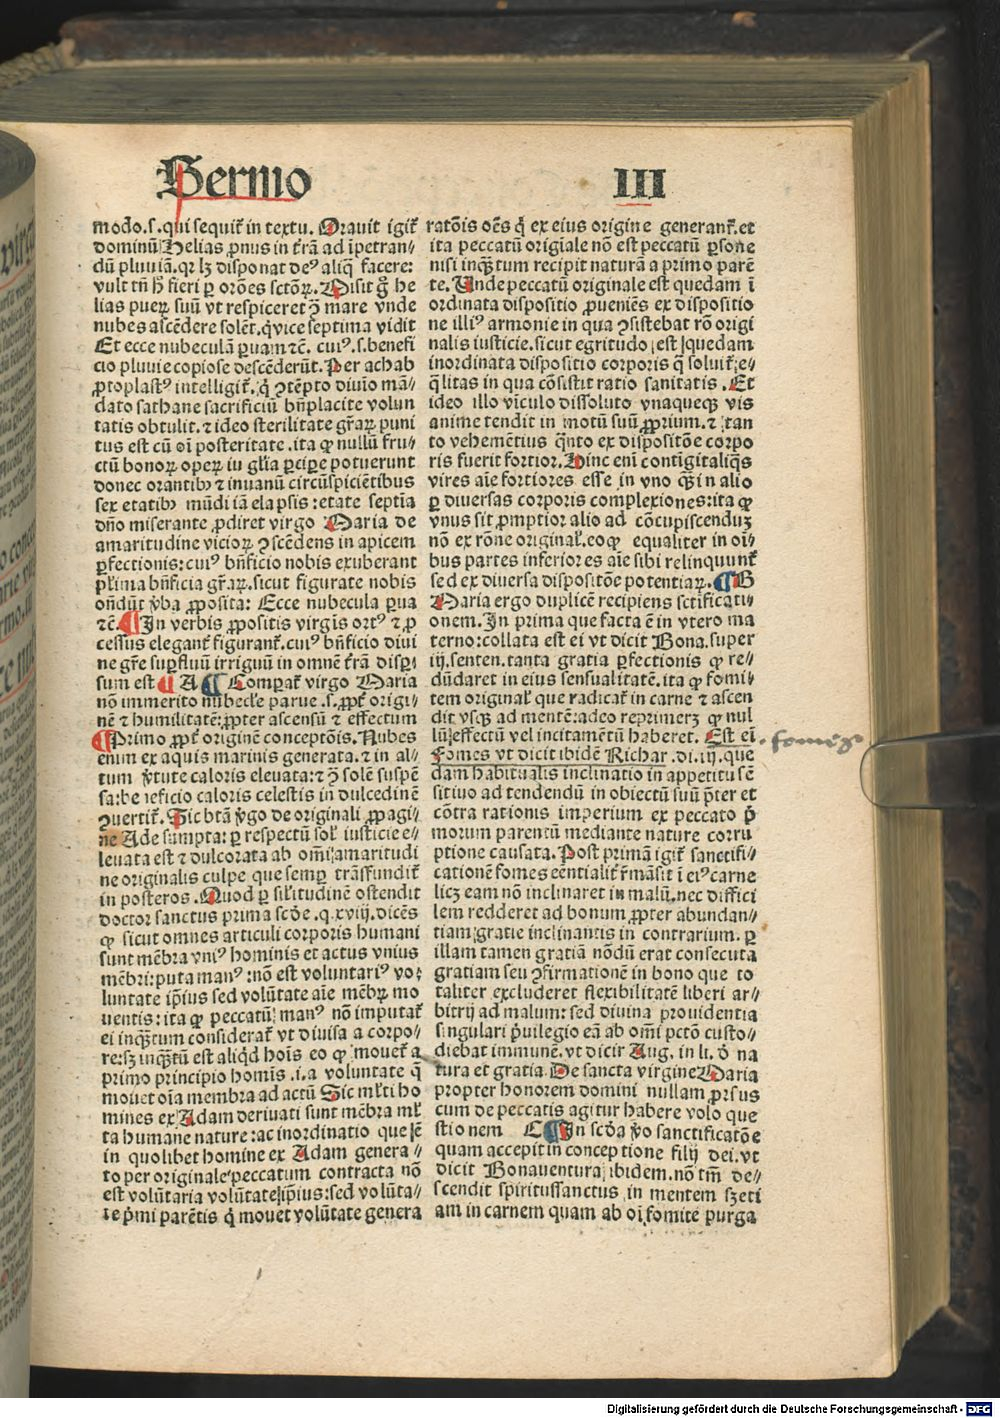 Sermo III
modo.s.qui sequit̃ in textu. Orauit igit̃
dominũ Helias ꝓnus in t̃rã ad ĩpetran⸗
dũ pluuiã.qr lꝫ disponat deꝰ aliq̃ facere:
vult tñ h̃ fieri ꝑ orões sctõꝝ. Misit g̃ he
lias pueꝝ suũ vt respiceret ꝯ̃ mare vnde
nubes ascẽdere solẽt.q̃vice septima vidit
Et ecce nubeculã ꝑuam ⁊c̃. cuiꝰ.s.benefi
cio pluuie copiose descẽderũt. Per achab
ꝓtoplastꝰ intelligit̃. q̃ ꝯtẽpto diuio mã⸗
dato sathane sacrificiũ bñplacite volun
tatis obtulit. ⁊ ideo sterilitate gr̃aꝝ puni
tus est cũ oĩ posteritate. ita ꝙ nullũ fru⸗
ctũ bonoꝝ opeꝝ iu gl̃ia ꝑciꝑe potuerunt
donec orantibꝫ ⁊ in vanũ circũspiciẽtibus
sex etatibꝫ mũdi iã elapsis: etate septĩa
dño miserante ꝓdiret virgo Maria de
amaritudine vicioꝝ ꝯscẽdens in apicem
ꝑfectionis: cuiꝰ bñficio nobis exuberant
ꝑl̃ima bñficia gr̃aꝝ. sicut figurate nobis
oñdũt v̓ba ꝓposita: Ecce nubecula ꝑua
⁊c̃. ¶ In verbis ꝓpositis virgis ortꝰ ⁊ ꝓ
cessus elegant̃ figurant̃. cuiꝰ bñficio diui
ne gr̃e suꝑfluũ irriguũ in omnẽ t̃rã disꝑ⸗
sum est ¶ A ¶ Comparat̃ virgo Maria
nõ immerito nubecl̃e parue .s. ꝓpt̃ origi⸗
nẽ ⁊ humilitatẽ: ꝓpter ascensũ ⁊ effectum
¶ Primo ꝓpt̃ originẽ conceptõis. Nubes
enim ex aquis marinis generata. ⁊ in al⸗
tum v̓tute caloris eleuata: ⁊ ꝯ̃ solẽ suspẽ
sa: beneficio caloris celestis in dulcedinẽ
ꝯuertit̃. Sic btã v̓go de originali ꝓpagi⸗
ne Ade sumpta: ꝑ respectũ sol̃ iusticie e⸗
leuata est ⁊ dulcorata ab om̃i amaritudi
ne originalis culpe que semꝑ trãsfundit̃
in posteros. Quod ꝑ sil̃itudinẽ ostendit
doctor sanctus prima scd̃e .q.xviij. dicẽs
ꝙ sicut omnes articuli corporis humani
sunt mẽbra vniꝰ hominis et actus vnius
mẽbri: puta manꝰ: nõ est voluntariꝰ vo⸗
luntate ip̃ius sed volũtate aĩe mẽbꝝ mo
uentis: ita ꝙ peccatũ manꝰ nõ imputat̃
ei inq̃ꝫtum considerat̃ vt diuisa a corpo⸗
re: sꝫ inq̃ꝫtũ est aliq̃d hoĩs eo ꝙ mouet̃ a
primo principio homĩs .i. a voluntate q̃
mouet oĩa membra ad actũ Sic ml̃ti ho
mines ex Adam deriuati sunt mẽbra ml̃
ta humane nature: ac inordinatio que ẽ
in quolibet homine ex Adam genera⸗
to per originale peccatum contracta nõ
est volũtaria volũtate ip̃ius: sed volũta⸗
te p̃mi parẽtis q̃ mouet volũtate genera
ratõis oẽs q̃ ex eius origine generant̃. et
ita peccatũ origiale nõ est peccatũ ꝑsone
nisi inq̃ꝫtum recipit naturã a primo parẽ
te. Unde peccatũ originale est quedam ĩ
ordinata dispositio ꝓueniẽs ex dispositio
ne illiꝰ armonie in qua ꝯsistebat rõ origi
nalis iusticie. sicut egritudo est quedam
inordinata dispositio corporis q̃ soluit̃ e⸗
q̃litas in qua cõsistit ratio sanitatis. Et
ideo illo vĩculo dissoluto vnaqueqꝫ vis
anime tendit in motũ suũ ꝓprium. ⁊ tan
to vehemẽtius q̃nto ex dispositõe corpo
ris fuerit fortior. Hinc eni contigit aliq̃s
vires aĩe fortiores esse in vno q̃ꝫ in alio
ꝑ diuersas corporis complexiones: ita ꝙ
vnus sit ꝓmptior alio ad cõcupiscenduꝫ
nõ ex rõne original̃. eo ꝙ equaliter in oĩ⸗
bus partes inferiores aĩe sibi relinquunt̃
sed ex diuersa dispositõe potentiaꝝ. ¶ B
Maria ergo duplicẽ recipiens sctificati⸗
onem. In prima que facta ẽ in vtero ma
terno: collata est ei vt dicit Bona. super
iij. senten. tanta gratia ꝑfectionis ꝙ re⸗
dũdaret in eius sensualitatẽ. ita ꝙ fomi⸗
tem original̃ que radicat̃ in carne ⁊ ascen
dit vsqꝫ ad mentẽ: adeo reprimerꝫ ꝙ nul
lũ effectũ vel incitamẽtũ haberet. Est ei
fomes vt dicit ibidẽ Richar. di. iij. que
dam habitualis inclinatio in appetitu sẽ
sitiuo ad tendendũ in obiectũ suũ p̃ter et
cõtra rationis imperium ex peccato p̃
morum parentũ mediante nature corru
ptione causata. Post primã igit̃ sanctifi⸗
cationẽ fomes eẽntialit̃ r̃mãsit ĩ eiꝰ carne
licꝫ eam nõ inclinaret in malũ. nec diffici
lem redderet ad bonum ꝓpter abundan⸗
tiam gratie inclinantis in contrarium. ꝑ
illam tamen gratiã nõdũ erat consecuta
gratiam seu ꝯfirmationẽ in bono que to
taliter excluderet flexibilitatẽ liberi ar⸗
bitrij ad malum: sed diuina prouidentia
singulari p̃uilegio eã ab om̃i pctõ custo⸗
diebat immunẽ. vt dicit Aug. in li. d̃ na
tura et gratia. De sancta virgine Maria
propter honorem domini nullam ꝓrsus
cum de peccatis agitur habere volo que
stionem C ¶ In scd̃a v̓o sanctificatõe
quam accepit in conceptione filij dei. vt
dicit Bonauentura ibidem. nõ tm̃ de⸗
scendit spiritussanctus in mentem sꝫ eti
am in carnem quam ab oĩ fomite purga
fomes
Digitalisierung gefördert durch die Deutsche Forschungsgemeinschaft - DFG